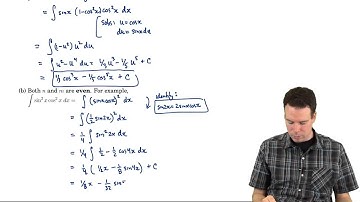 = ∫ sinx (1-cos²x) cos²x dx
[subs: u=cosx
du=-sinxdx
= ∫ (1-u²) u² du
= ∫ u⁴ - u² du = 1/5 u⁵ - 1/3 u³ + C
= 1/5 cos⁵x - 1/3 cos³x + C
(b) Both n and m are even. For example,
∫ sin²x cos²x dx = ∫ (sinxcosx)² dx
identity:
sin2x = 2sinxcosx
= ∫ (½ sin2x)² dx
= ¼ ∫ sin²2x dx
= ¼ ∫ ½ - ½ cos4x dx
= ¼ (½x - ⅛ sin4x) + C
= ⅛x - 1/32 sin